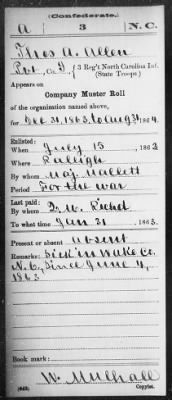 (Confederate.)
A 3 N.C.
Thos A. Allen
Pvt, Co. D, 3 Reg't North Carolina Inf.
(State Troops.)
Appears on
Company Muster Roll
of the organization named above,
for Dec 31, 1863, to Aug 31, 1864.
Enlisted:
When July 15, 1862
Where Raleigh
By whom Maj. Mallett
Period For the war
Last paid:
By whom
To what time Jan 31, 1863.
Present or absent absent
Remarks: Sick in Wake Co.
N.C., Since June 4,
1863
Book mark:
W. Mulhall
(642) Copyist.